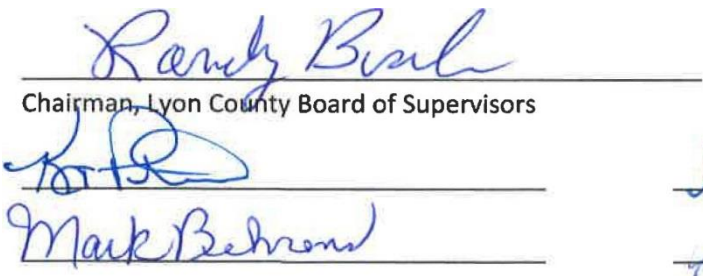 Randy Bosch
Chairman, Lyon County Board of Supervisors
Mark Behrens